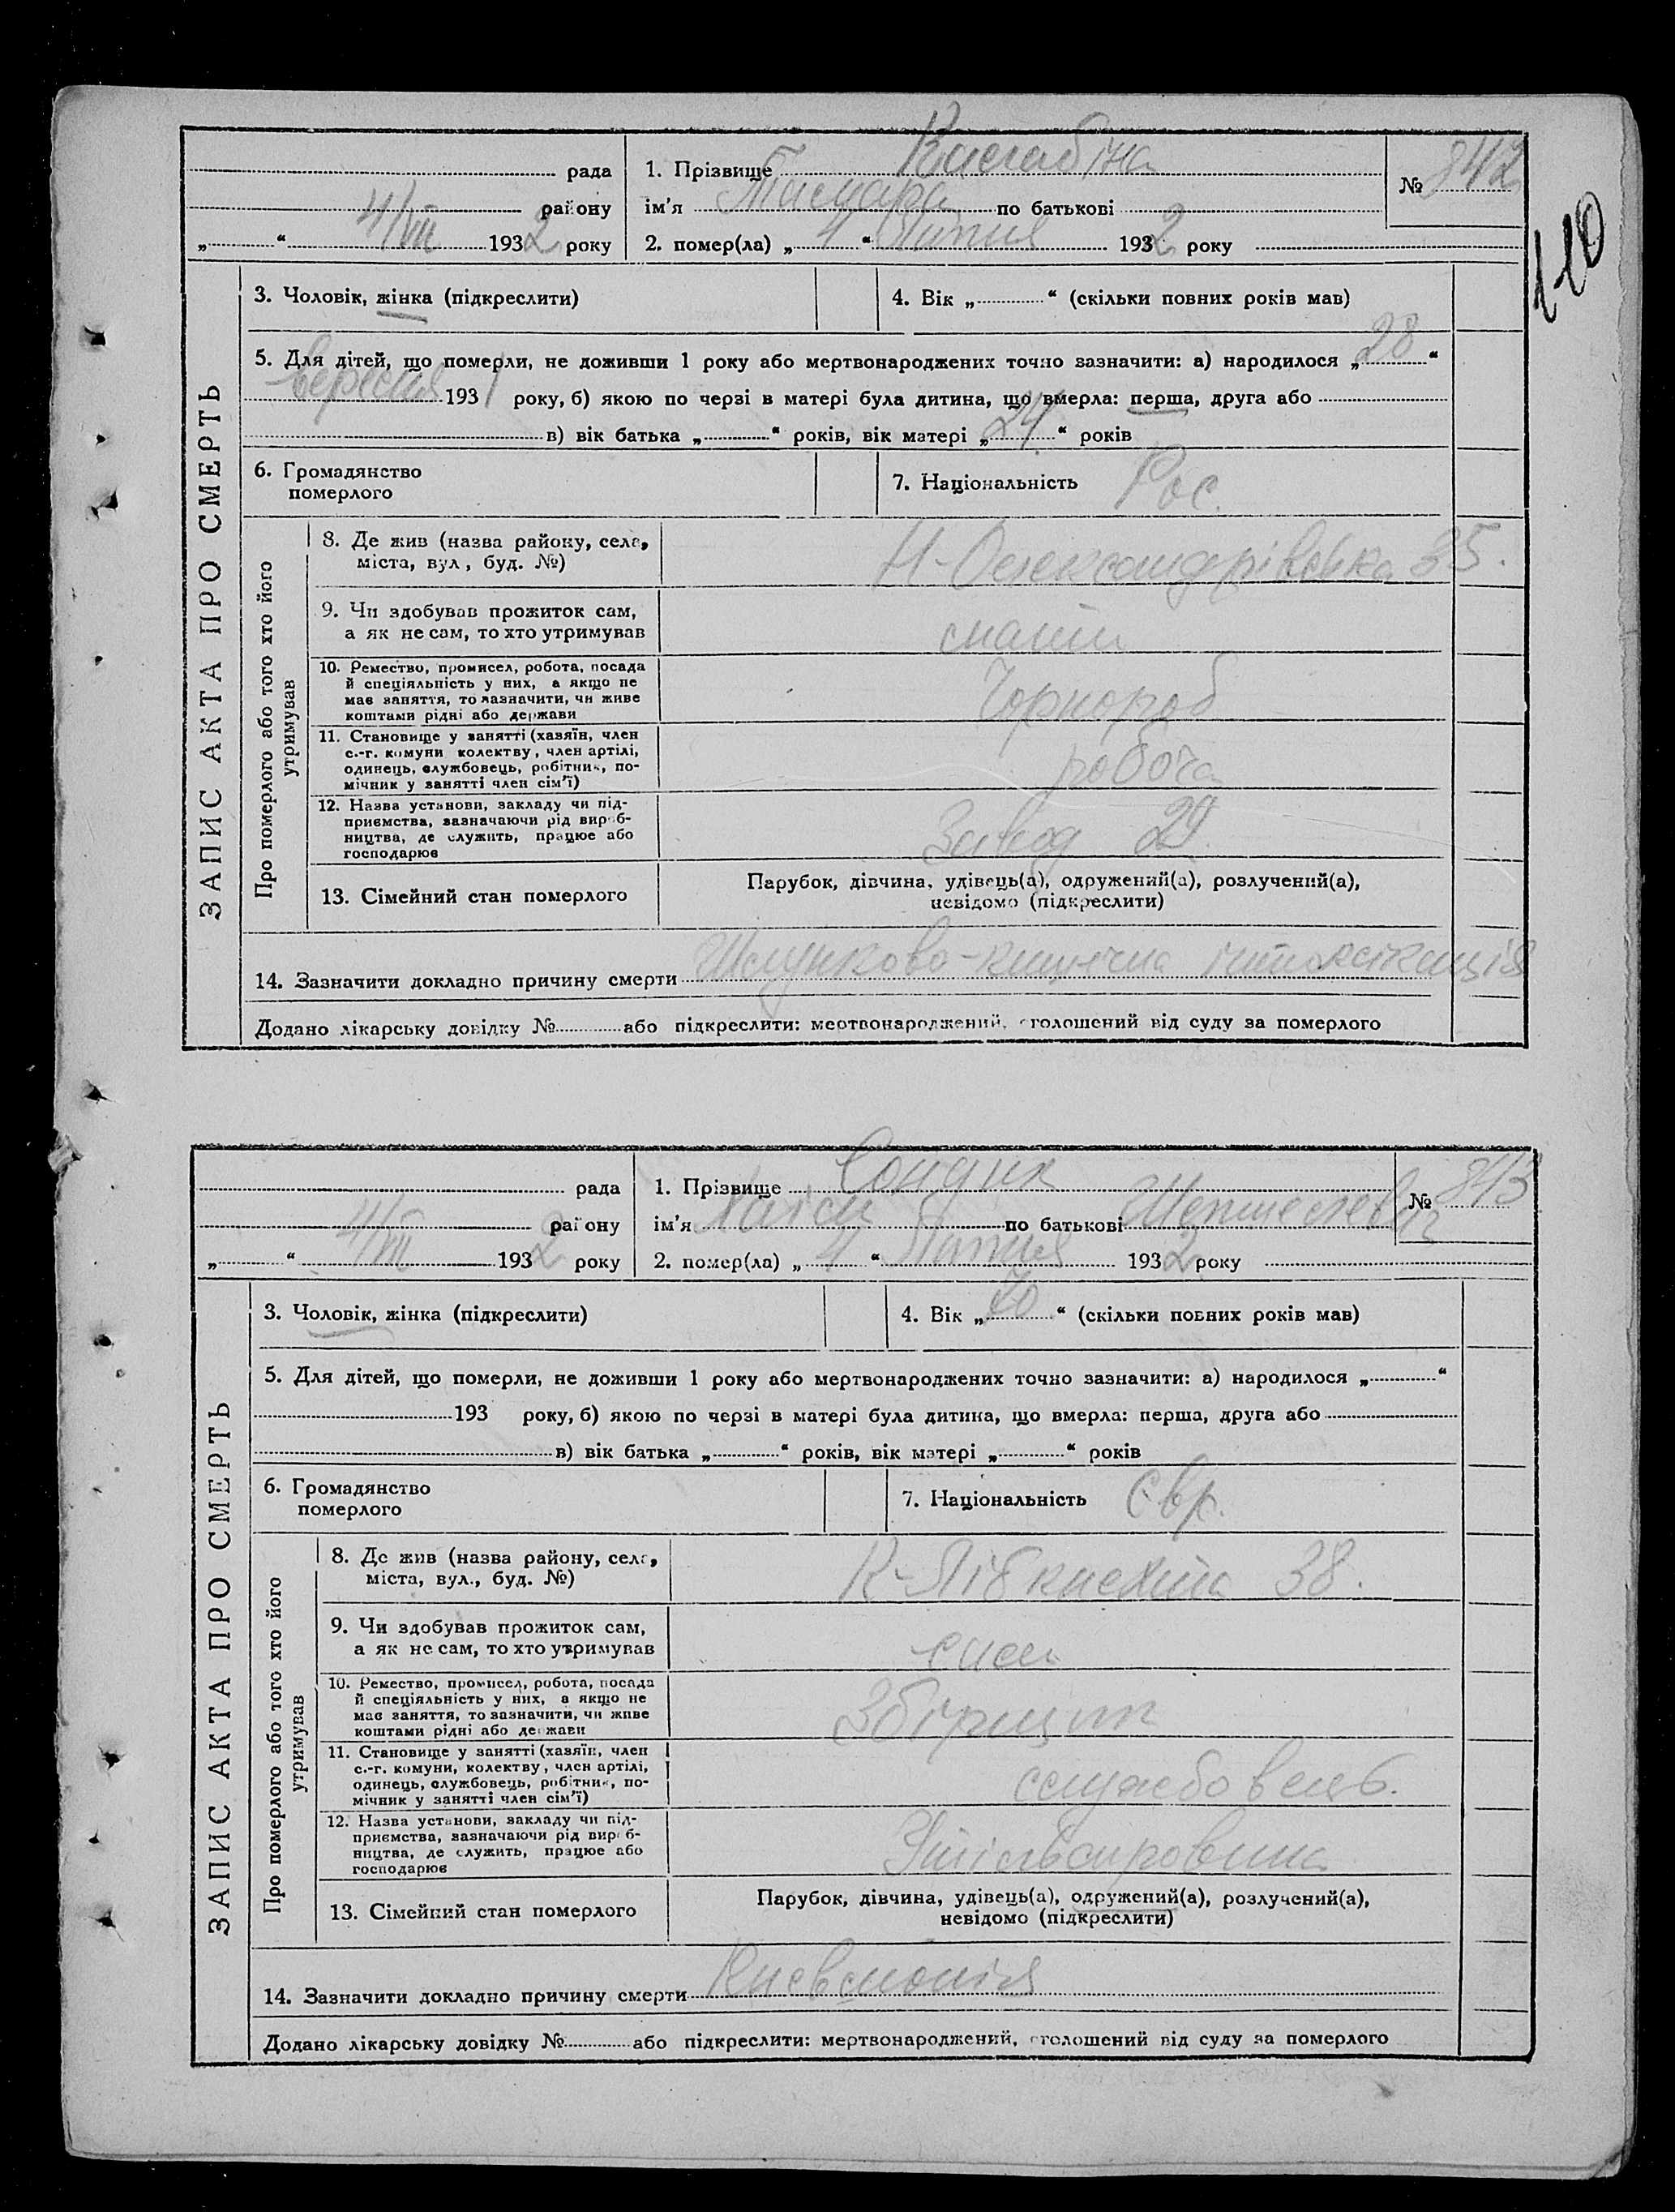 рада
району
4/VII 1932 року
1. Прізвище
№ 842
ім'я Тамара по батькові
2. помер(ла) „4“ Липня 1932 року
110
ЗАПИС АКТА ПРО СМЕРТЬ
3. Чоловік, жінка (підкреслити)
4. Вік „ “ (скільки повних років мав)
5. Для дітей, що померли, не доживши 1 року або мертвонароджених точно зазначити: а) народилося „28“
вересня 1931 року, б) якою по черзі в матері була дитина, що вмерла: перша, друга або
в) вік батька „ “ років, вік матері „24“ років
6. Громадянство
померлого
7. Національність Рос.
Про померлого або того хто його
утримував
8. Де жив (назва району, села,
міста, вул, буд. №)
Н-Олександрівська 35.
9. Чи здобував прожиток сам,
а як не сам, то хто утримував
мати
10. Ремество, промисел, робота, посада
й спеціяльність у них, а якщо не
має заняття, то зазначити, чи живе
коштами рідні або держави
Чорнороб
11. Становище у занятті (хазяїн, член
с.-г. комуни колектву, член артілі,
одинець, службовець, робітник, по-
мічник у занятті член сім'ї)
робоча
12. Назва установи, закладу чи під-
приємства, зазначаючи рід вироб-
ництва, де служить, працює або
господарює
Завод 29.
13. Сімейний стан померлого
Парубок, дівчина, удівець(а), одружений(а), розлучений(а),
невідомо (підкреслити)
14. Зазначити докладно причину смерти Шлунково-кишечна інтоксікація
Додано лікарську довідку № або підкреслити: мертвонароджений, оголошений від суду за померлого
рада
району
4/VII 1932 року
1. Прізвище Сондик
№ 843
ім'я Хаїм по батькові
2. помер(ла) „4“ Липня 1932 року
ЗАПИС АКТА ПРО СМЕРТЬ
3. Чоловік, жінка (підкреслити)
4. Вік „70“ (скільки повних років мав)
5. Для дітей, що померли, не доживши 1 року або мертвонароджених точно зазначити: а) народилося „ “
193 року, б) якою по черзі в матері була дитина, що вмерла: перша, друга або
в) вік батька „ “ років, вік матері „ “ років
6. Громадянство
померлого
7. Національність Євр.
Про померлого або того хто його
утримував
8. Де жив (назва району, села,
міста, вул., буд. №)
К-Лібкнехта 38.
9. Чи здобував прожиток сам,
а як не сам, то хто утримував
сам
10. Ремество, промисел, робота, посада
й спеціяльність у них, а якщо не
має заняття, то зазначити, чи живе
коштами рідні або держави
Збірщик
11. Становище у занятті (хазяїн, член
с.-г. комуни, колектву, член артілі,
одинець, службовець, робітник, по-
мічник у занятті член сім'ї)
службовець.
12. Назва установи, закладу чи під-
приємства, зазначаючи рід вироб-
ництва, де служить, працює або
господарює
Утільсировина
13. Сімейний стан померлого
Парубок, дівчина, удівець(а), одружений(а), розлучений(а),
невідомо (підкреслити)
14. Зазначити докладно причину смерти Пневмонія
Додано лікарську довідку № або підкреслити: мертвонароджений, оголошений від суду за померлого